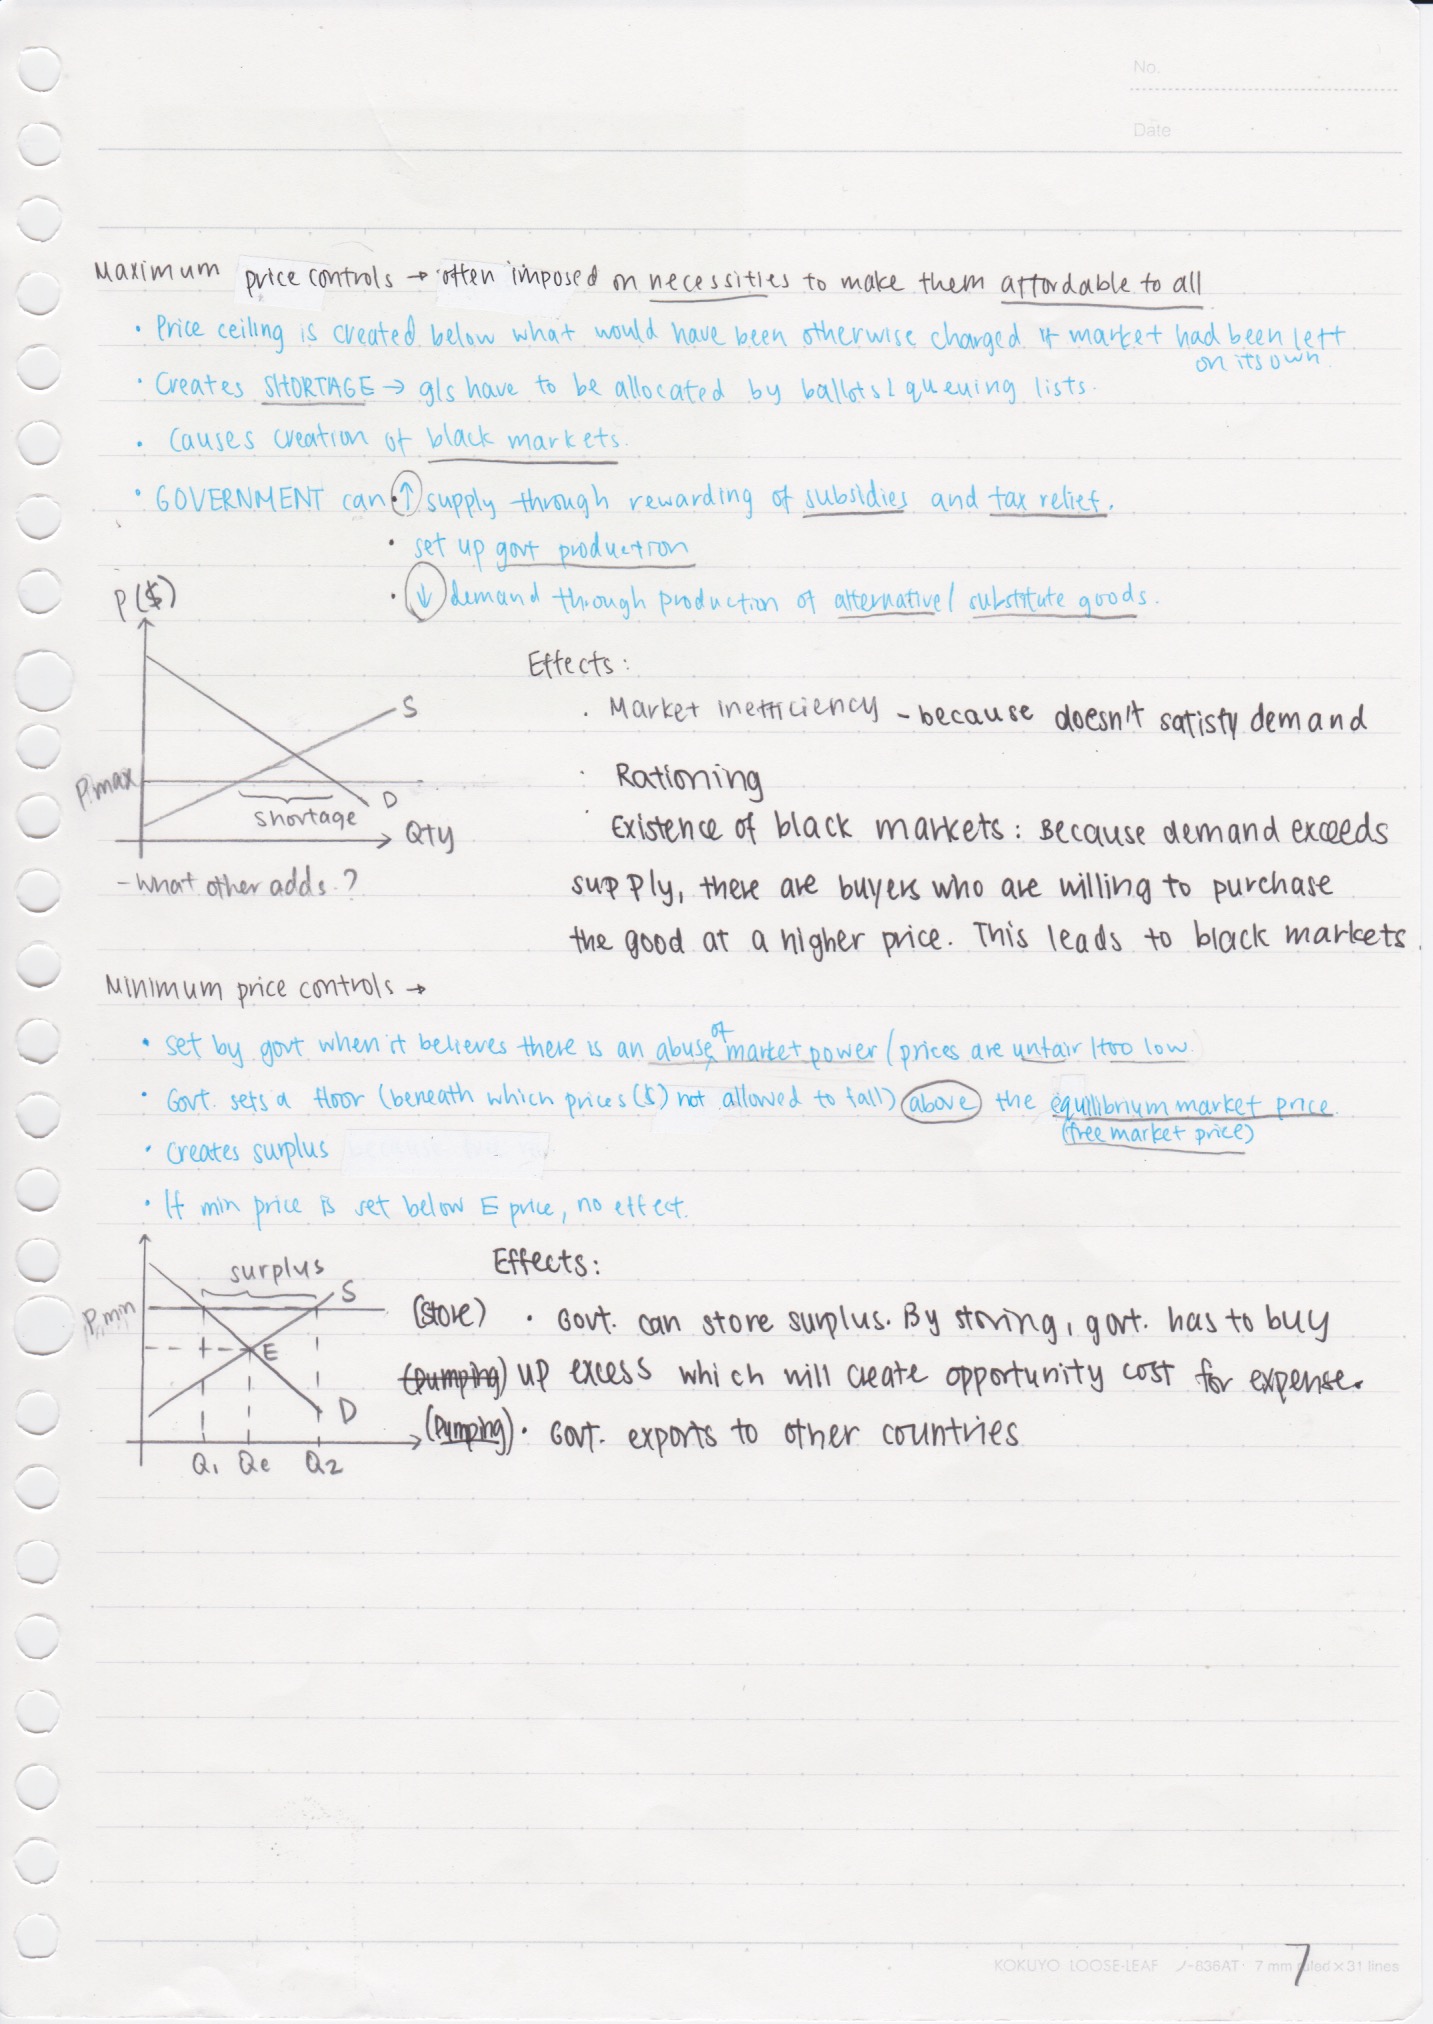 No.
Date
Maximum price controls → often imposed on necessities to make them affordable to all
• Price ceiling is created below what would have been otherwise charged if market had been left
on its own.
• Creates SHORTAGE → g/s have to be allocated by ballots & queuing lists.
• Causes creation of black markets.
• GOVERNMENT can • ↑ supply through rewarding of subsidies and tax relief.
• set up govt production
• ↓ demand through production of alternative/ substitute goods.
P($)
Effects:
S
• Market inefficiency – because doesn't satisfy demand
Pmax
• Rationing
D
shortage
Qty
• Existence of black markets: Because demand exceeds
- What other adds.?
supply, there are buyers who are willing to purchase
the good at a higher price. This leads to black markets.
Minimum price controls →
• set by govt when it believes there is an abuse of market power (prices are unfair / too low.
• Govt. sets a floor (beneath which prices ($) not allowed to fall) above the equilibrium market price
(free market price)
• Creates surplus
• If min price is set below E price, no effect.
surplus
Effects:
S
Pmin
(store) • Govt. can store surplus. By storing, govt. has to buy
E
(Dumping) up excess which will create opportunity cost for expense.
D
(Dumping) • Govt. exports to other countries
Q1 Qe Q2
KOKUYO LOOSE-LEAF ノ-836AT 7 mm ruled × 31 lines
7